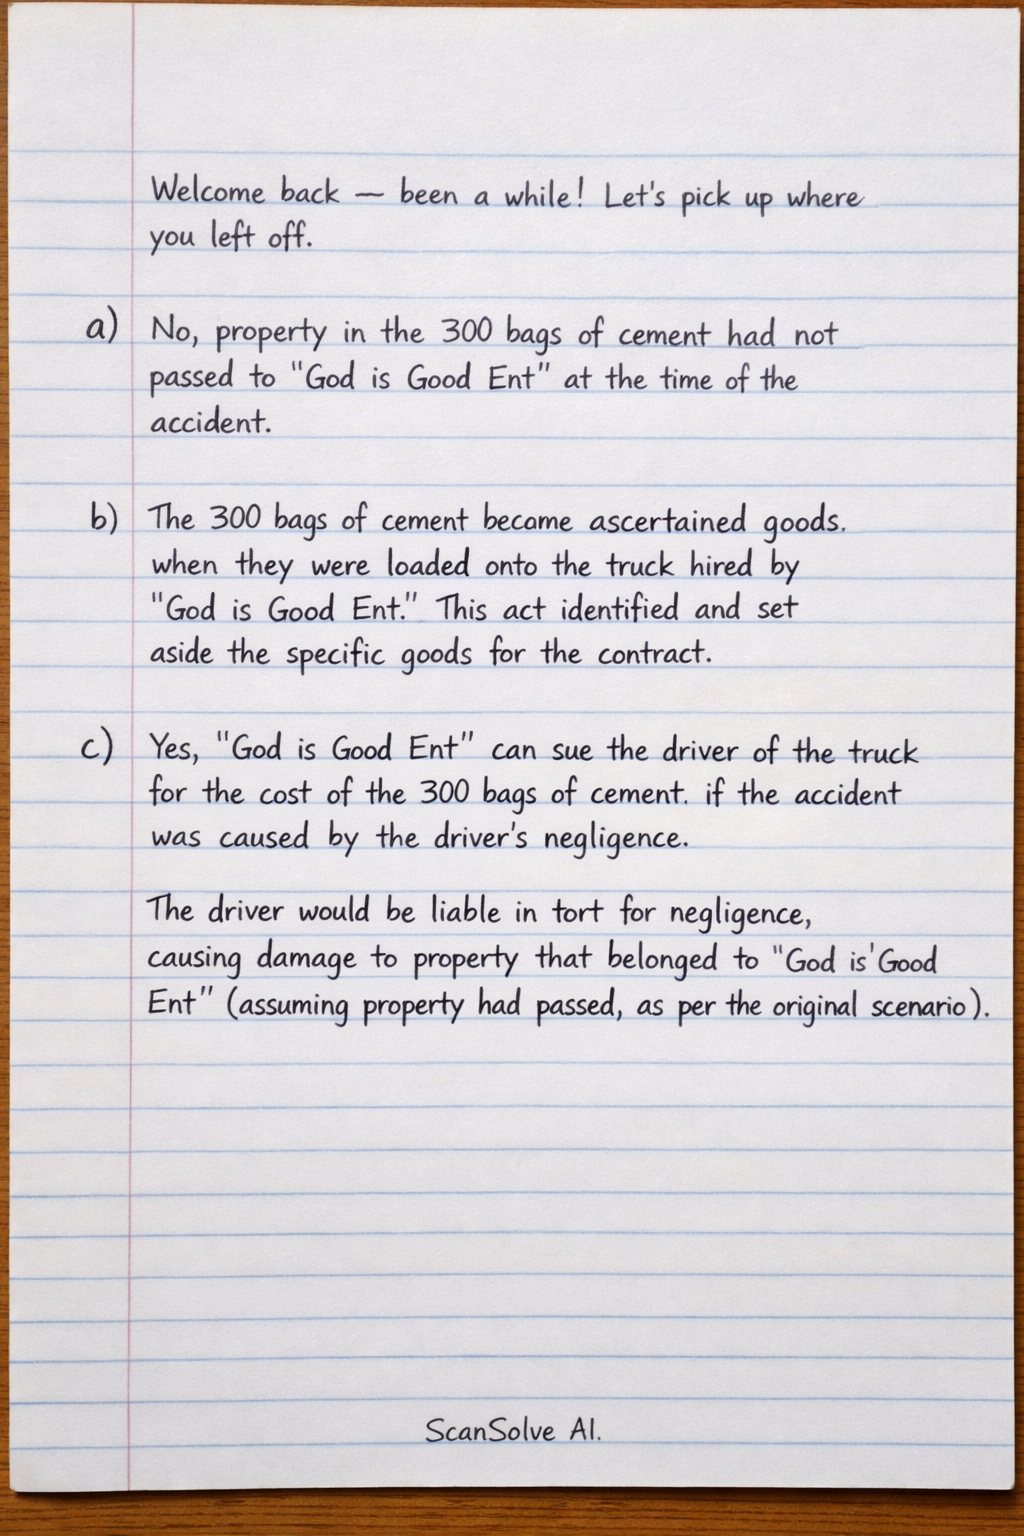 Welcome back — been a while! Let's pick up where
you left off.
a) No, property in the 300 bags of cement had not
passed to "God is Good Ent" at the time of the
accident.
b) The 300 bags of cement become ascertained goods.
when they were loaded onto the truck hired by
"God is Good Ent." This act identified and set
aside the specific goods for the contract.
c) Yes, "God is Good Ent" can sue the driver of the truck
for the cost of the 300 bags of cement. if the accident
was caused by the driver's negligence.
The driver would be liable in tort for negligence,
causing damage to property that belonged to "God is'Good
Ent" (assuming property had passed, as per the original scenario).
ScanSolve AI.